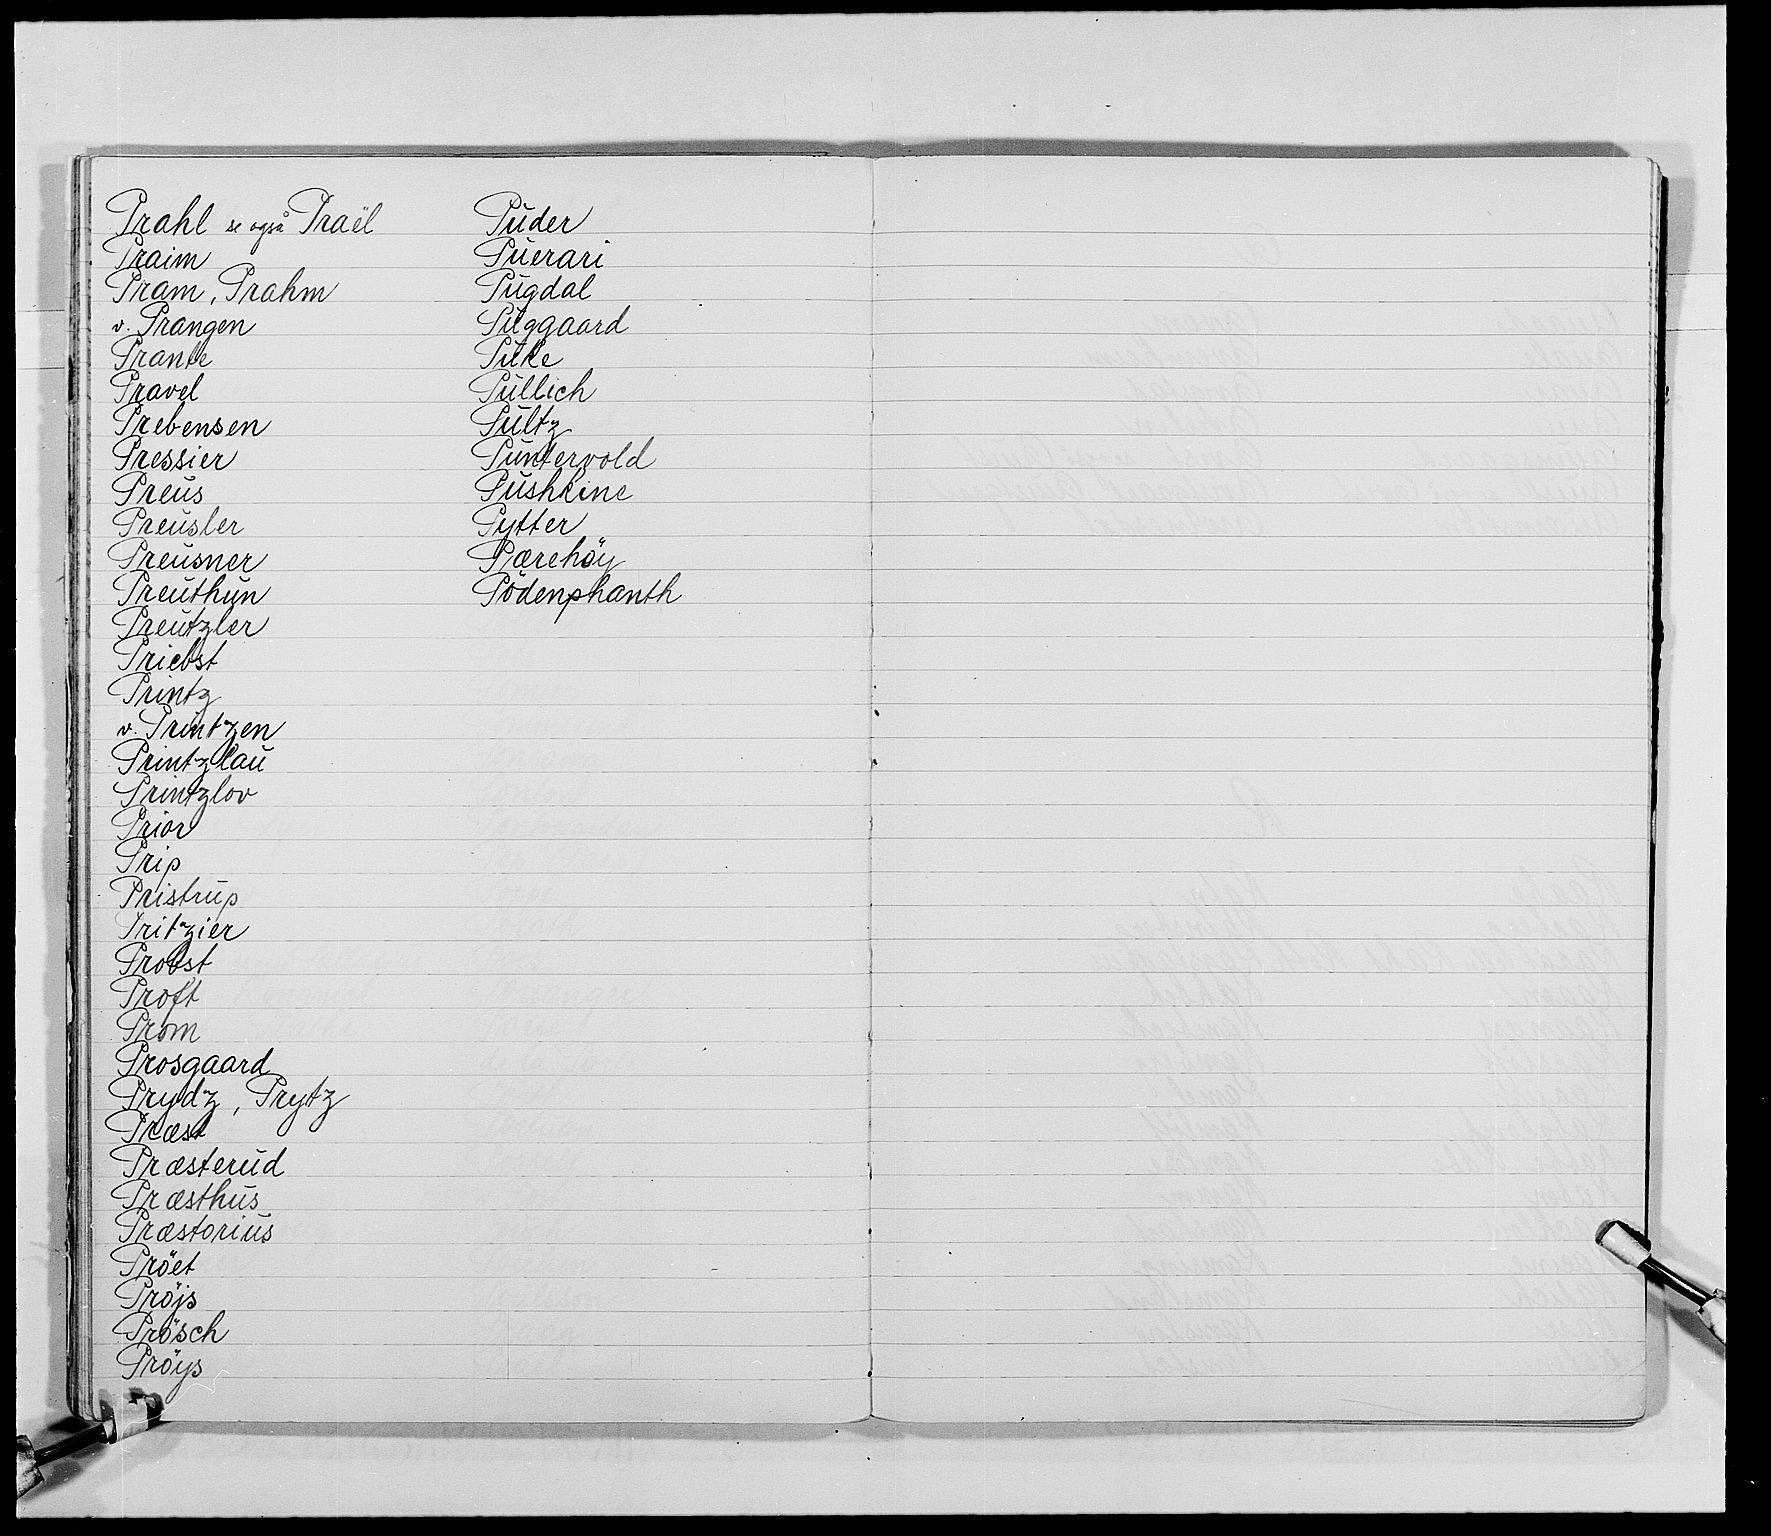 Prahl se også Praël
Praim
Pram, Prahm
v. Prangen
Prante
Pravel
Prebensen
Pressier
Preus
Preusler
Preusner
Preuthun
Preutzler
Priebst
Printz
v. Printzen
Printzlau
Printzlov
Prior
Prip
Pristrup
Pritzier
Probst
Proft
Prom
Prosgaard
Prydz, Prytz
Præst
Præsterud
Præsthus
Præstorius
Pröet
Pröjs
Prösch
Pröys
Puder
Puerari
Pugdal
Puggaard
Puke
Pullich
Pultz
Puntervold
Pushkine
Pytter
Pærehöy
Pödenphanth